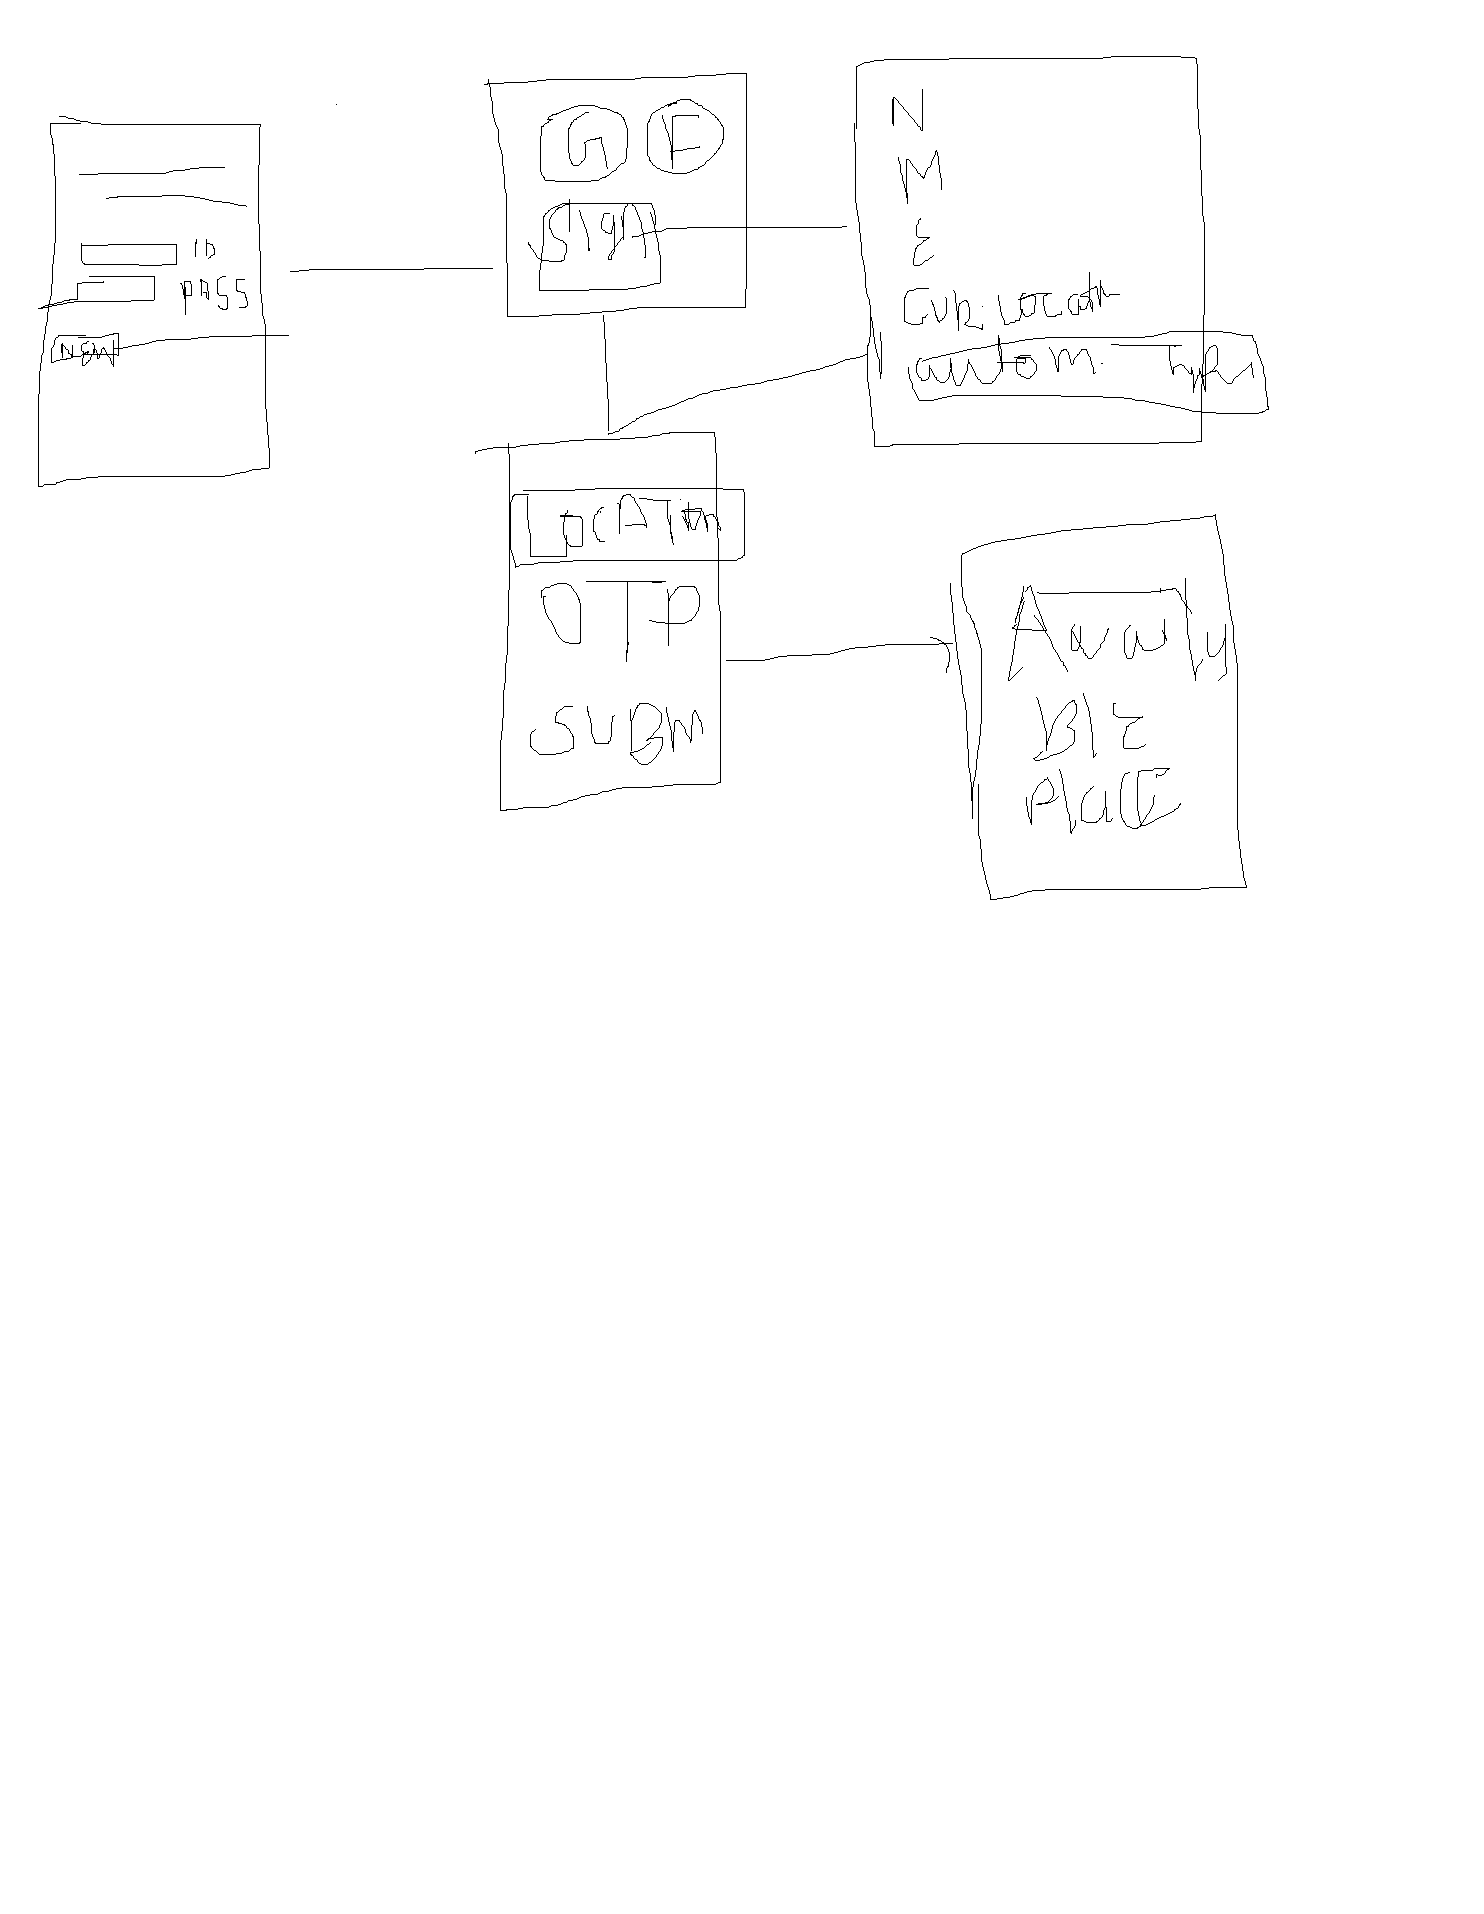 ID
PASS
NEW
G F
SIGN
N
M
E
CUR. LOCATN
autom. Type
LOCATION
OTP
SUBM
BIZ
PLACE